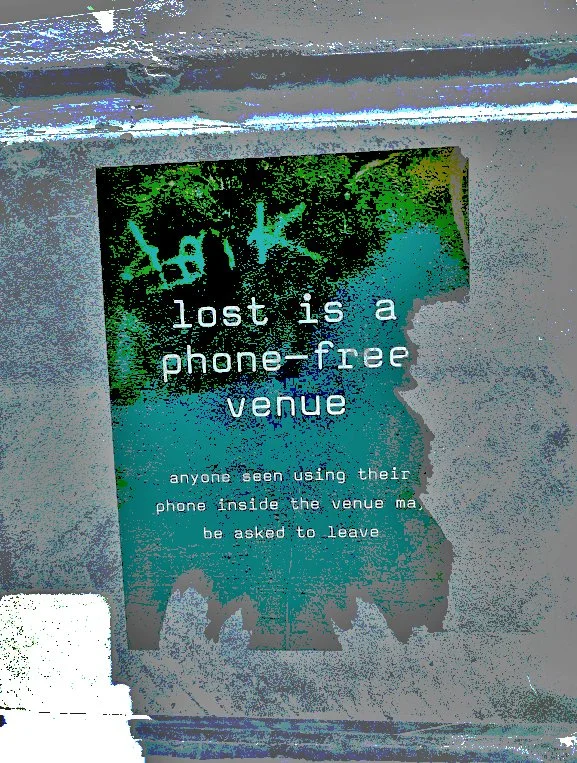 lost is a
phone-free
venue
anyone seen using their
phone inside the venue may
be asked to leave